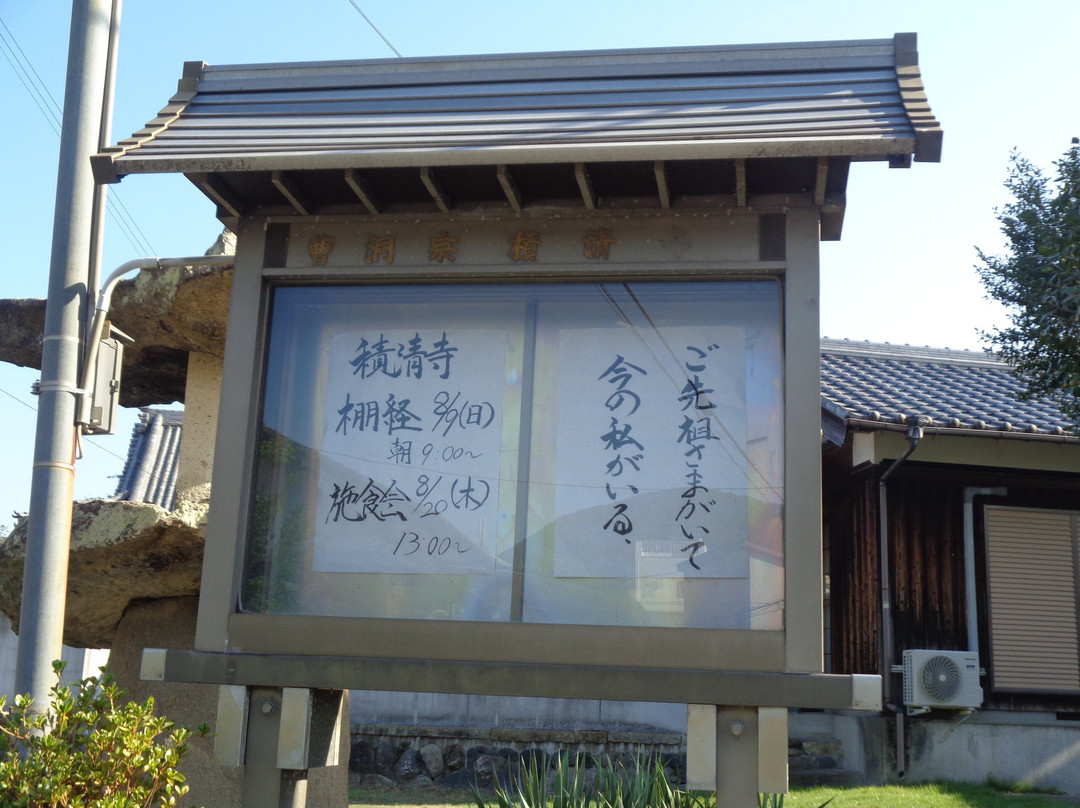 曹洞宗 積清
積清寺
棚経 8/9(日)
朝 9:00～
施食会 8/20(木)
13:00～
ご先祖さまがいて
今の私がいる、